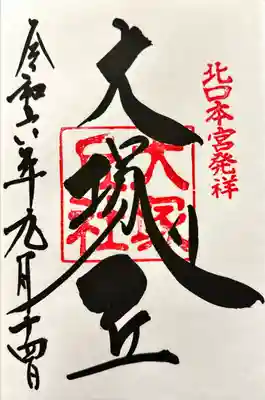 北口本宮発祥
大塚丘
大塚丘社
令和六年九月十四日